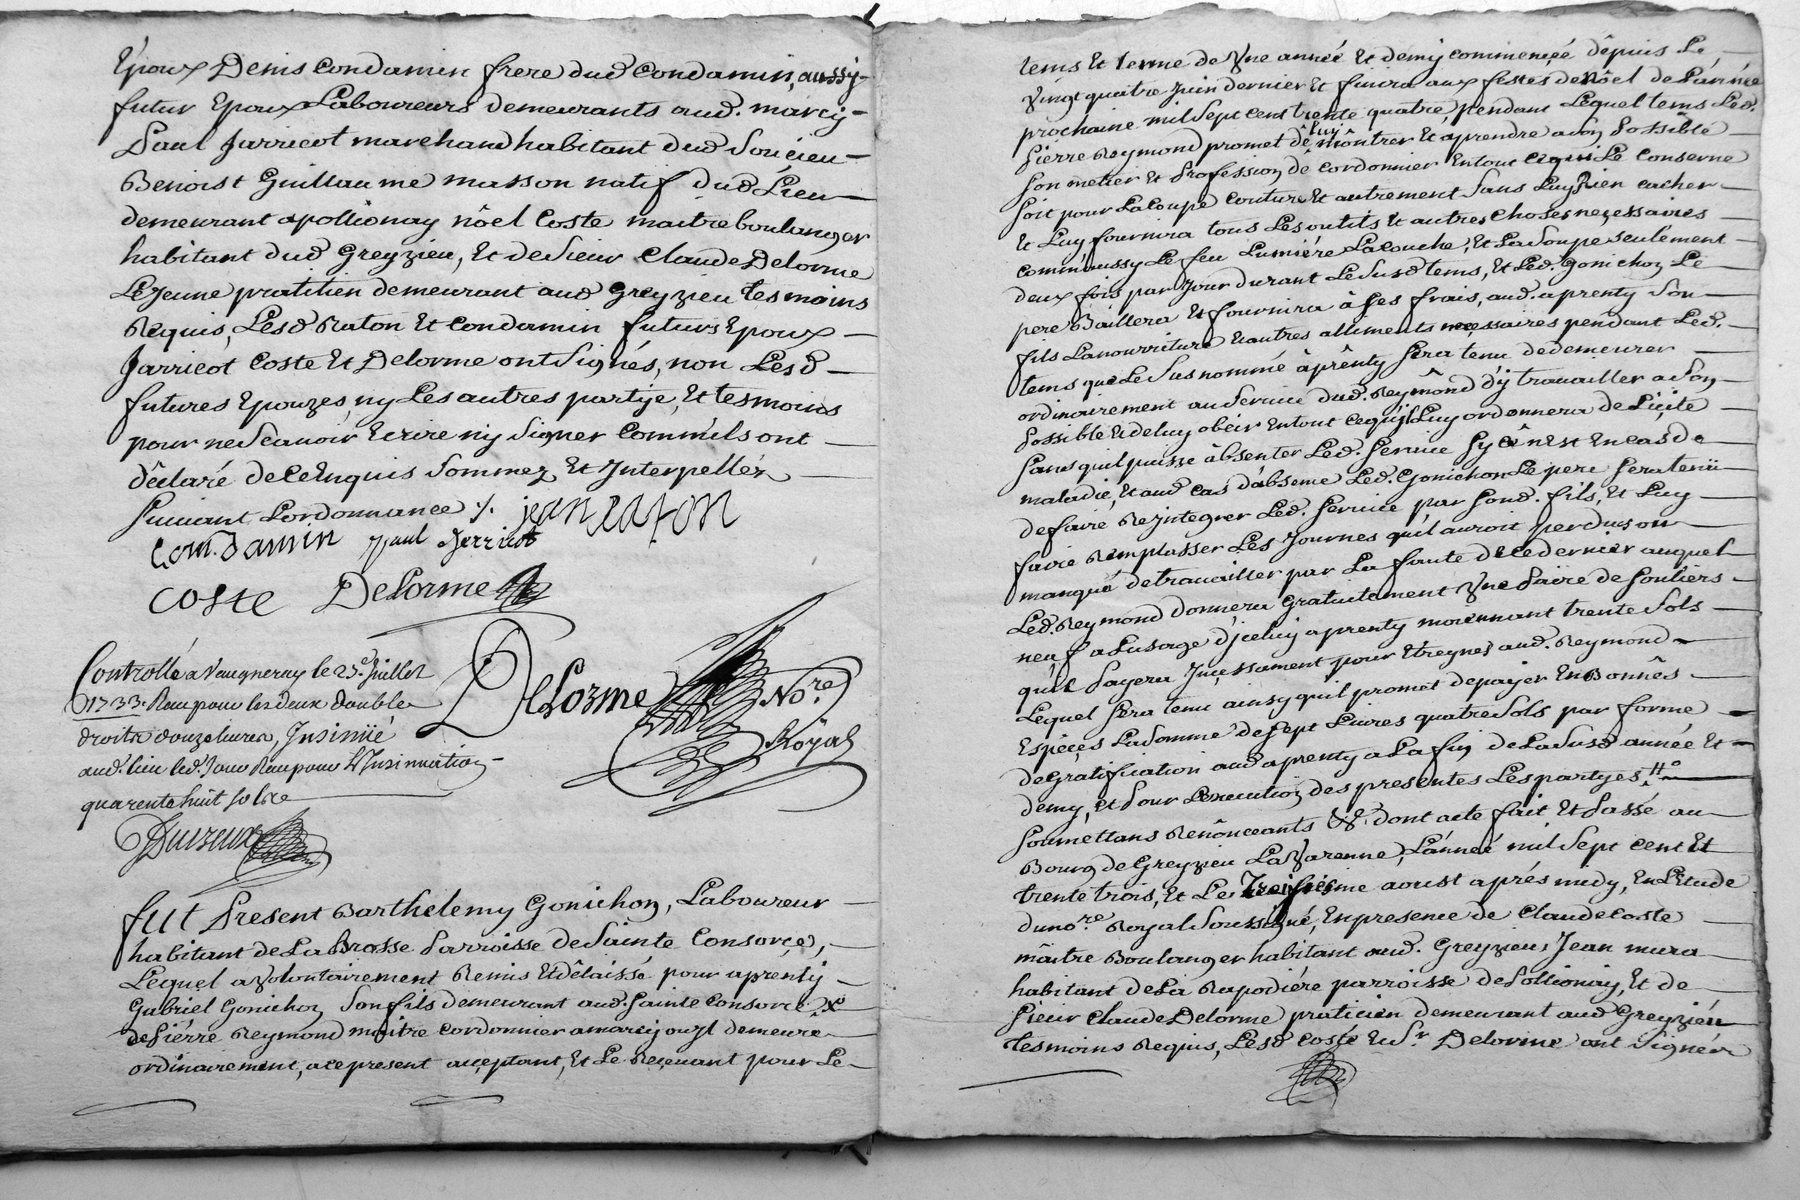 Epoux Denis Condamin frere dud Condamin, aussy
futur Epoux Laboureurs demeurants aud. marcy
Paul Jarricot marchand habitant dud Soucieu
Benoist Guillaume masson natif dud Lieu
demeurant apollionay nôel Coste maitre boulanger
habitant dud Greyzieu, Et de Sieur Claude Delorme
Le Jeune pratitien demeurant aud Greyzieu tesmoins
Requis, Lesd Raton Et Condamin futurs Epoux
Jarricot Coste Et Delorme ont Signés, non Lesd
futures Epouzes, ny Les autres partye, Et tesmoins
pour ne Scavoir Ecrire n'y Signer Comm'ils ont
dêclaré de ce Enquis Sommez Et Interpellez
Suivant Lordonnance ./. jean raton
Condamin paul Jerricot
Coste DeLorme
DeLorme No.re
Royal
Controllé a Vaugneray le 25e. Juillet
1733. Reçu pour les deux double
droits douze livres, Insinüé
aud. lieu led. Jour Reçu pour L'Insinuation
quarente huit sols
fut Present Barthelemy Gonichon, Laboureur
habitant de La Brosse Parroisse de Sainte Consorce,
Lequel a volontairement Remis Et dêlaissé pour aprenty
Gabriel Gonichon Son fils demeurant aud. Sainte Consorce
de Piérre Reymond maitre Cordonnier a marcy ou Jl demeure
ordinairement, a ce present acceptant, Et Le Recevant pour Le
tems Et terme de Une année Et demy commencée dêpuis Le
Vingt quatre Juin dernier Et finira aux festes de Nôel de L'année
prochaine mil Sept Cent trente quatre, pendant Lequel tems Led.
Pierre Reymond promet de luy môntrer Et aprendre a Son Possible
Son metier Et Profession de Cordonnier En tout Ce qui Le Conserne
Soit pour La Coupe Couture Et autrement Sans Luy Rien cacher
Et Luy fournira tous Les outils Et autres choses necessaires
comm'aussy Le feu Lumiére La Couche, Et La Soupe Seulement
deux fois par Jour durant Le Susd tems, Et Led. Gonichon Le
pere Baillera Et fournira à Ses frais, aud. aprenty Son
fils La nourriture Et autres alliments necessaires pendant Led.
tems que Le Sus nommé aprênty Sera tenu de demeurer
ordinairement au Service dud. Reymond d'y travailler a Son
Possible Et de Luy obéir En tout Ce qu'il Luy ordonnera de Licite
Sans qu'il puisse absenter Led. Service Sy Ce n'Est En cas de
maladie, Et aud cas d'absence Led. Gonichon Le pere Sera tenü
de faire Reintegrer Led. Service par Sond. fils, Et Luy
faire Remplasser Les Journes qu'il auroit perdues ou
manqué de travailler par La faute de ce dernier auquel
Led. Reymond donnera gratuitement Une Paire de Souliers
neuf a L'usage d'jceluy aprenty moiennant trente Sols
qu'il Payera Incessament pour Etreynes aud. Reymond
Lequel Sera tenu ainsy qu'il promet de payer En Bonnês
Espéces La Somme de Sept Livres quatre Sols par forme
de Gratification aud aprenty a La fin de La Susd année Et
demy, Et Pour L'execution des presentes Les partyes
Soumettans Renônceants &a dont acte fait Et Passé au
Bourg de Greyzieu La Varenne, L'année mil Sept cent Et
trente trois, Et Le Treiziéme aoust aprés midy, En L'Etude
du no.re Royal Soussigné, En presence de Claude Coste
mâitre Boulanger habitant aud. Greyzieu, Jean mura
habitant de La Rapodiére parroisse de Pollionay, Et de
Sieur Claude Delorme praticien demeurant aud Greyziéu
tesmoins Requis, Lesd Coste Et Sr Delorme ont Signéz